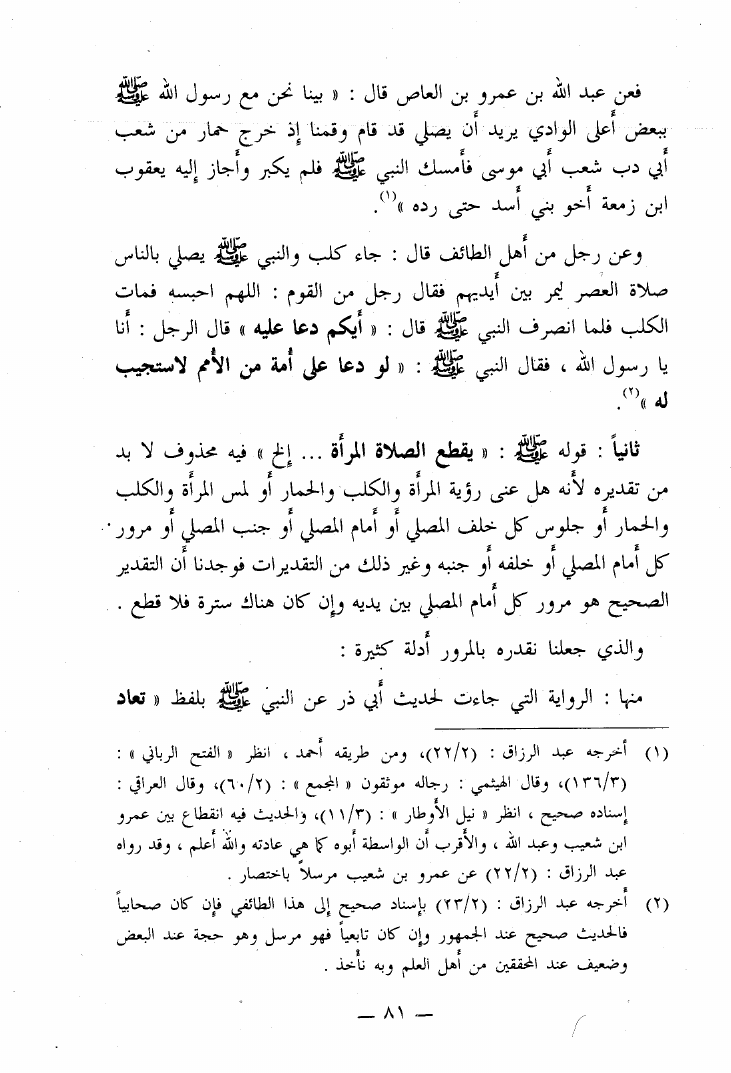 فعن عبد الله بن عمرو بن العاص قال : « بينا نحن مع رسول الله ﷺ
ببعض أعلى الوادي يريد أن يصلي قد قام وقمنا إذ خرج حمار من شعب
أبي دب شعب أبي موسى فأمسك النبي ﷺ فلم يكبر وأجاز إليه يعقوب
ابن زمعة أخو بني أسد حتى رده »(١).
وعن رجل من أهل الطائف قال : جاء كلب والنبي ﷺ يصلي بالناس
صلاة العصر ليمر بين أيديهم فقال رجل من القوم : اللهم احبسه فمات
الكلب فلما انصرف النبي ﷺ قال : « أيكم دعا عليه » قال الرجل : أنا
يا رسول الله ، فقال النبي ﷺ : « لو دعا على أمة من الأمم لاستجيب
له »(٢).
ثانياً : قوله ﷺ : « يقطع الصلاة المرأة ... إلخ » فيه محذوف لا بد
من تقديره لأنه هل عنى رؤية المرأة والكلب والحمار أو لمس المرأة والكلب
والحمار أو جلوس كل خلف المصلي أو أمام المصلي أو جنب المصلي أو مرور
كل أمام المصلي أو خلفه أو جنبه وغير ذلك من التقديرات فوجدنا أن التقدير
الصحيح هو مرور كل أمام المصلي بين يديه وإن كان هناك سترة فلا قطع .
والذي جعلنا نقدره بالمرور أدلة كثيرة :
منها : الرواية التي جاءت لحديث أبي ذر عن النبي ﷺ بلفظ « تعاد
(١) أخرجه عبد الرزاق : (٢٢/٢)، ومن طريقه أحمد ، انظر « الفتح الرباني » :
(١٣٦/٣)، وقال الهيثمي : رجاله موثقون « المجمع » : (٦٠/٢)، وقال العراقي :
إسناده صحيح ، انظر « نيل الأوطار » : (١١/٣)، والحديث فيه انقطاع بين عمرو
ابن شعيب وعبد الله ، والأقرب أن الواسطة أبوه كما هي عادته والله أعلم ، وقد رواه
عبد الرزاق : (٢٢/٢) عن عمرو بن شعيب مرسلاً باختصار .
(٢) أخرجه عبد الرزاق : (٢٣/٢) بإسناد صحيح إلى هذا الطائفي فإن كان صحابياً
فالحديث صحيح عند الجمهور وإن كان تابعياً فهو مرسل وهو حجة عند البعض
وضعيف عند المحققين من أهل العلم وبه نأخذ .
— ٨١ —